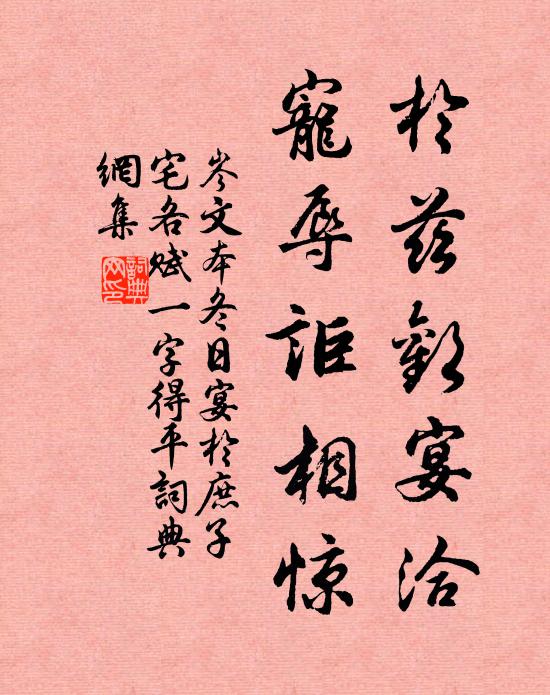 於兹歡宴洽
寵辱詎相惊
岑文本冬日宴於庶子
宅各赋一字得平詞典
網集
詞典網印